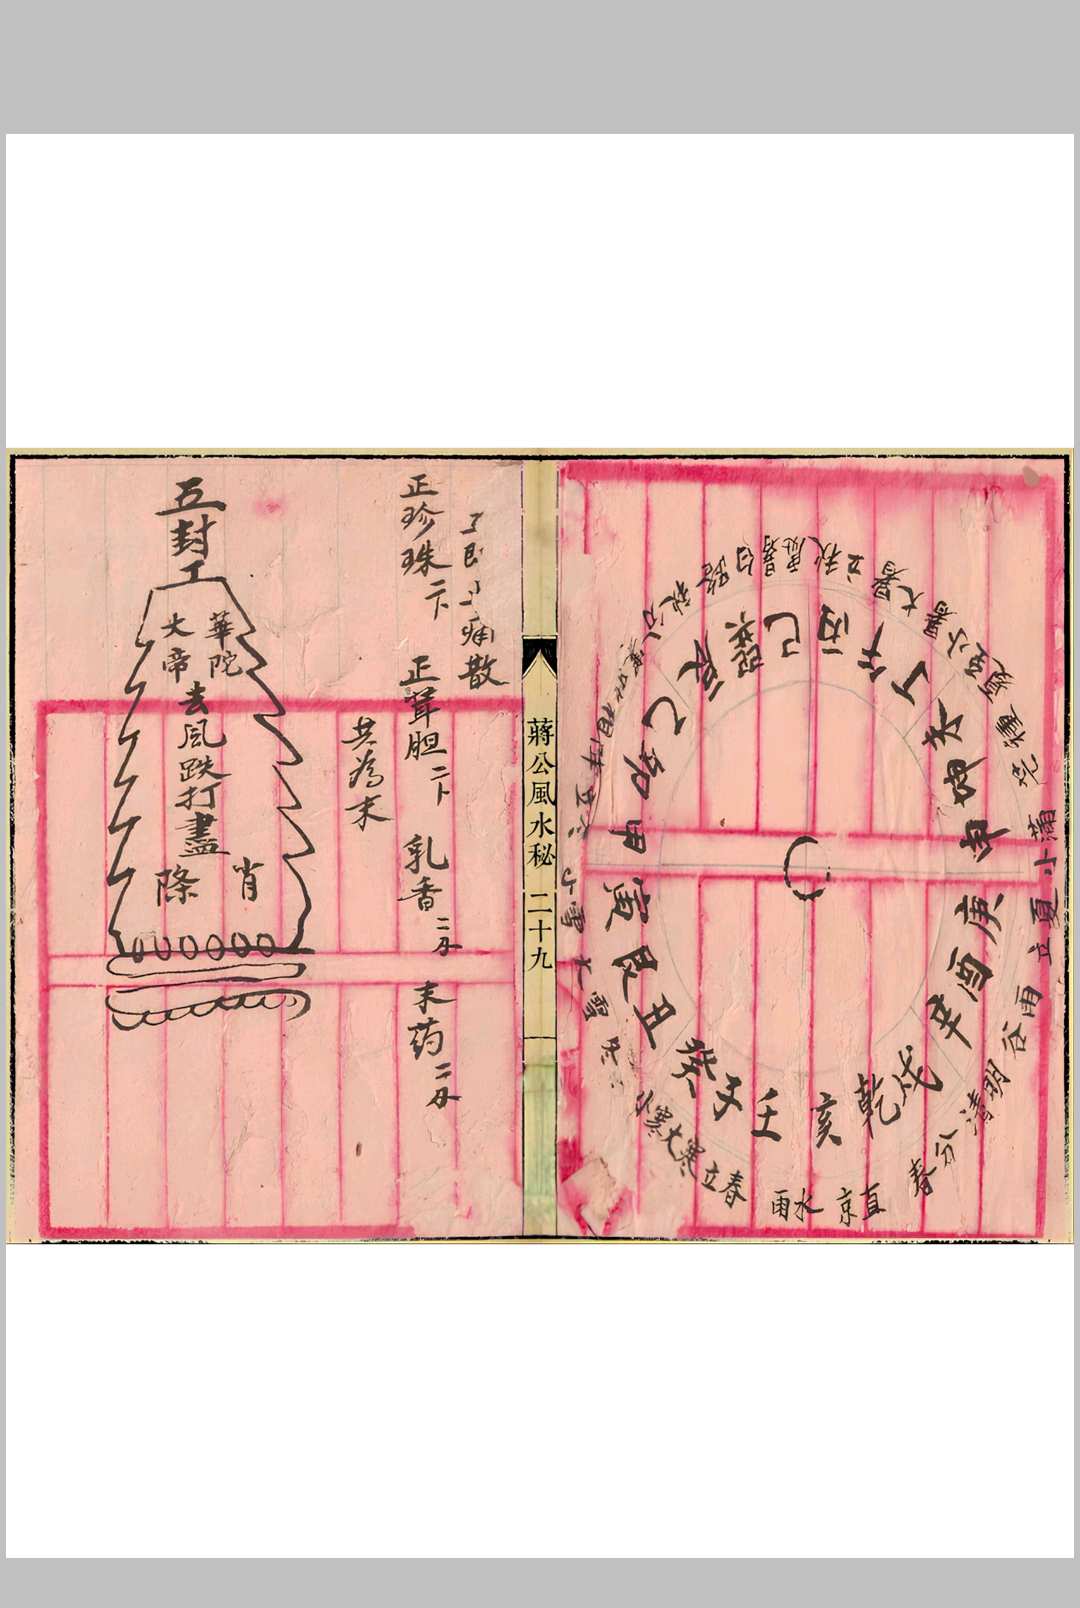 丙
午
丁
未
坤
申
庚
酉
辛
戌
乾
亥
壬
子
癸
丑
艮
寅
甲
卯
乙
辰
巽
巳
立春
雨水
京直
春分
清明
谷雨
立夏
小滿
小暑
大暑
立秋
處暑
白路
秋分
小雪
大雪
小寒
大寒
蔣公風水秘 二十九
散
正珍珠二卜
正茸胆二卜
乳香二分
末药二分
共為末
五封
華陀
大帝
去風跌打盡
肖
除